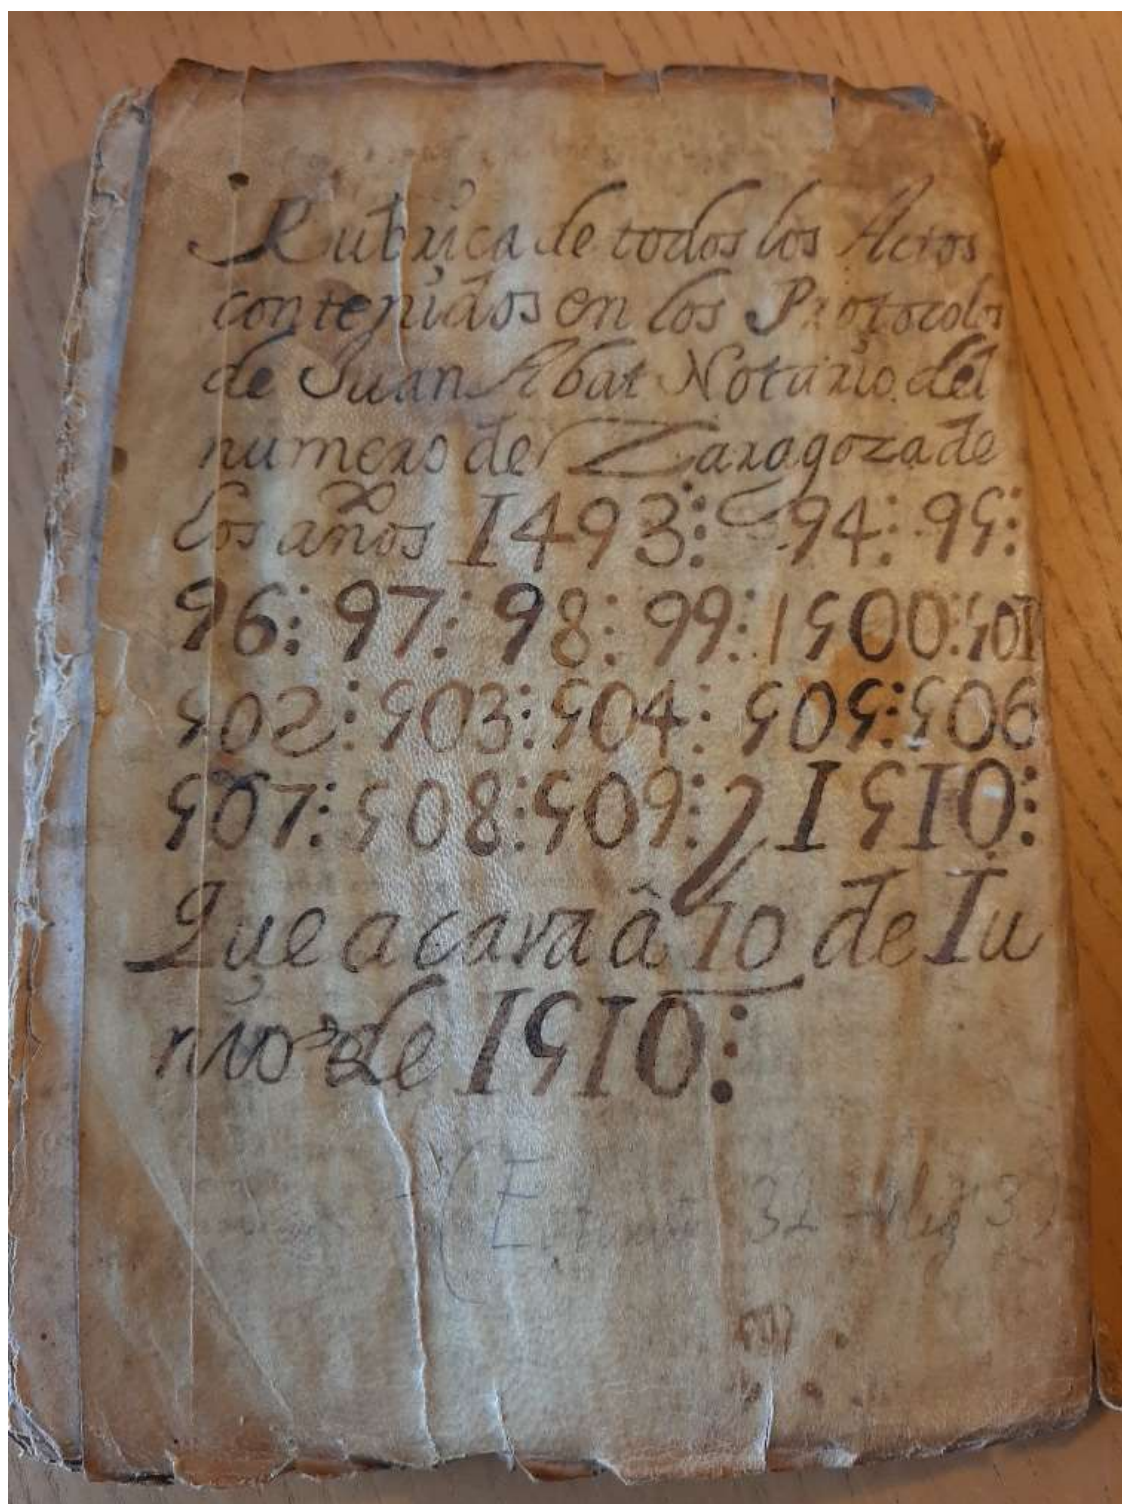 Rubrica de todos los Actos
contenidos en los Protocolos
de Juan Abat Notario del
numero de Zaragoza de
los años 1493: 94: 95:
96: 97: 98: 99: 1500: 501
502: 503: 504: 505: 506
507: 508: 509: y 1510:
Que acava â 10 de Iu
nio de 1510:
32 3)